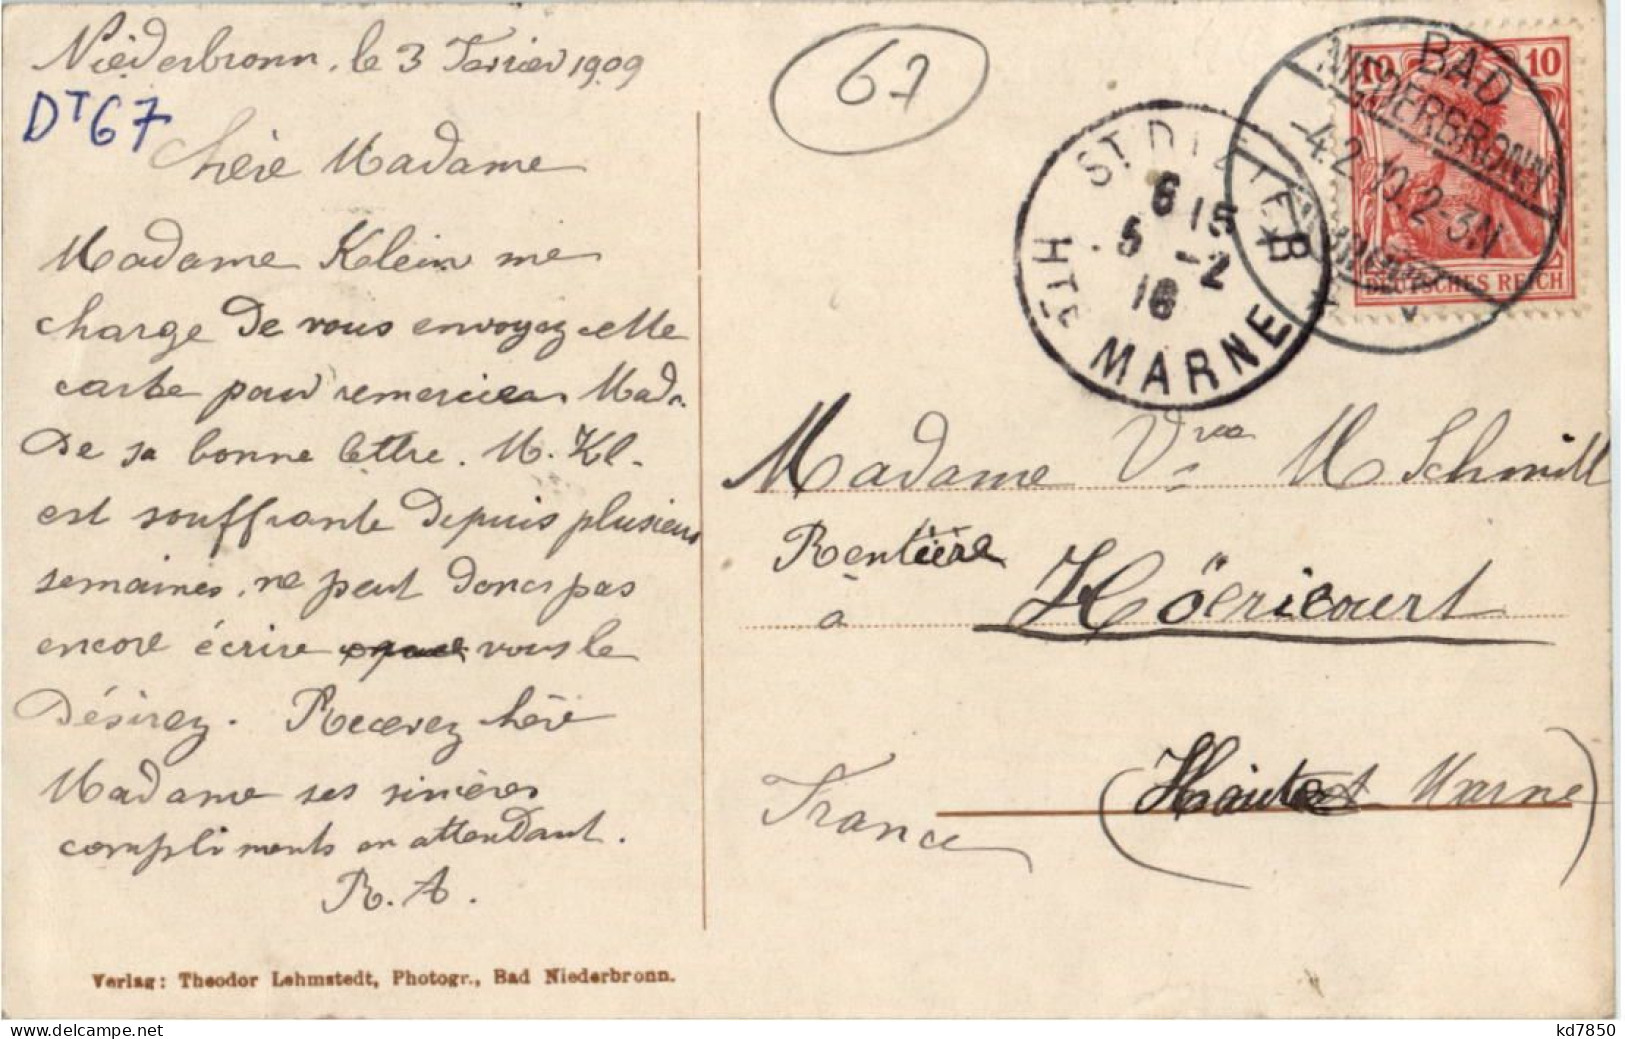 Niederbronn, le 3 Fevrier 1909
DT67
chère Madame
Madame Klein me
charge de vous envoyez cette
carte pour remercier Mad.
de sa bonne lettre. M. Kl.
est souffrante depuis plusieurs
semaines, ne peut donc pas
encore écrire vous le
désirez. Recevez chère
Madame ses sinières
compliments en attendant.
R. A.
Verlag: Theodor Lehmstedt, Photogr., Bad Niederbronn.
67
ST DIZIER
6 15
5 -2
10
HTE MARNE
BAD
NIEDERBRONN
-4.2.10.2-3N
10 10
DEUTSCHES REICH
Madame Vve M Schmitt
Rentière
à Höericourt
(Haute Marne)
France
kd7850